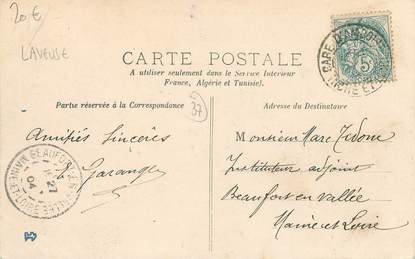 20€
LAVEUSE
CARTE POSTALE
A utiliser seulement dans le Service Intérieur
France, Algérie et Tunisie).
Partie réservée à la Correspondance
37
Adresse du Destinataire
Amitiés Sincères
Garangé
Monsieur Marc
Instituteur adjoint
Beaufort en vallée
Maine et Loire
BEAUFORT-EN-VALLÉE
MAINE-ET-LOIRE
27
04
GARE
5